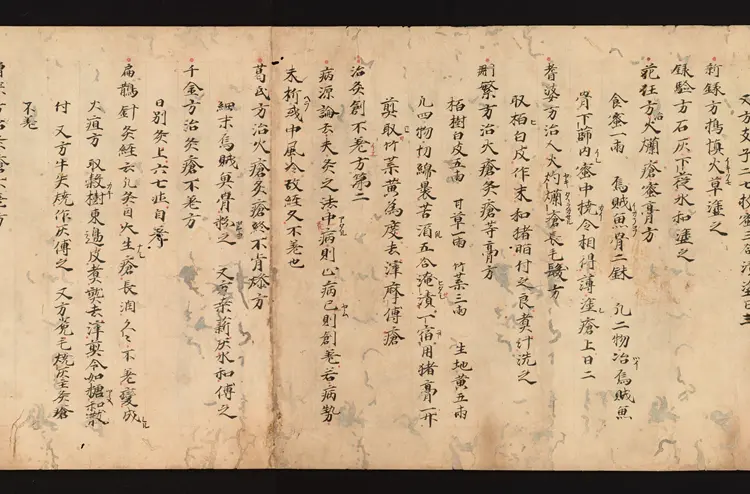 新録方搗慎火草塗之
録驗方石灰下蓰水和塗之
范汪方火爛瘡蜜膏方
食蜜一兩 烏賊魚骨二銖 凡二物冶烏賊魚
骨下篩内蜜中攪令相得薄塗瘡上日二
耆婆方治人火灼爛瘡長毛髮方
取栢白皮作末和猪脂付之良煮汁洗之
刪繁方治火瘡灸瘡等膏方
栢樹白皮五兩 甘草一兩 竹葉三兩 生地黄五兩
凡四物切綿裹苦酒五合淹漬一宿用猪膏一升
煎取竹葉黄為度去滓摩傅瘡
治灸創不差方第二
病源論云夫灸之法中病則止病已則創差若病勢
未折或中風冷故經久不差也
葛氏方治火瘡灸瘡終不肯燥方
細末烏賊魚骨粉之 又方柴薪灰水和傅之
千金方治灸瘡不差方
日別灸上六七壯自差
扁鵲針灸經云凡灸因火生瘡長潤久久不差變成
火疽方 取穀樹東邊皮煮熟去滓煎令如糖和散
付 又方牛矢燒作灰傅之 又方兎毛燒灰塗灸瘡
不差